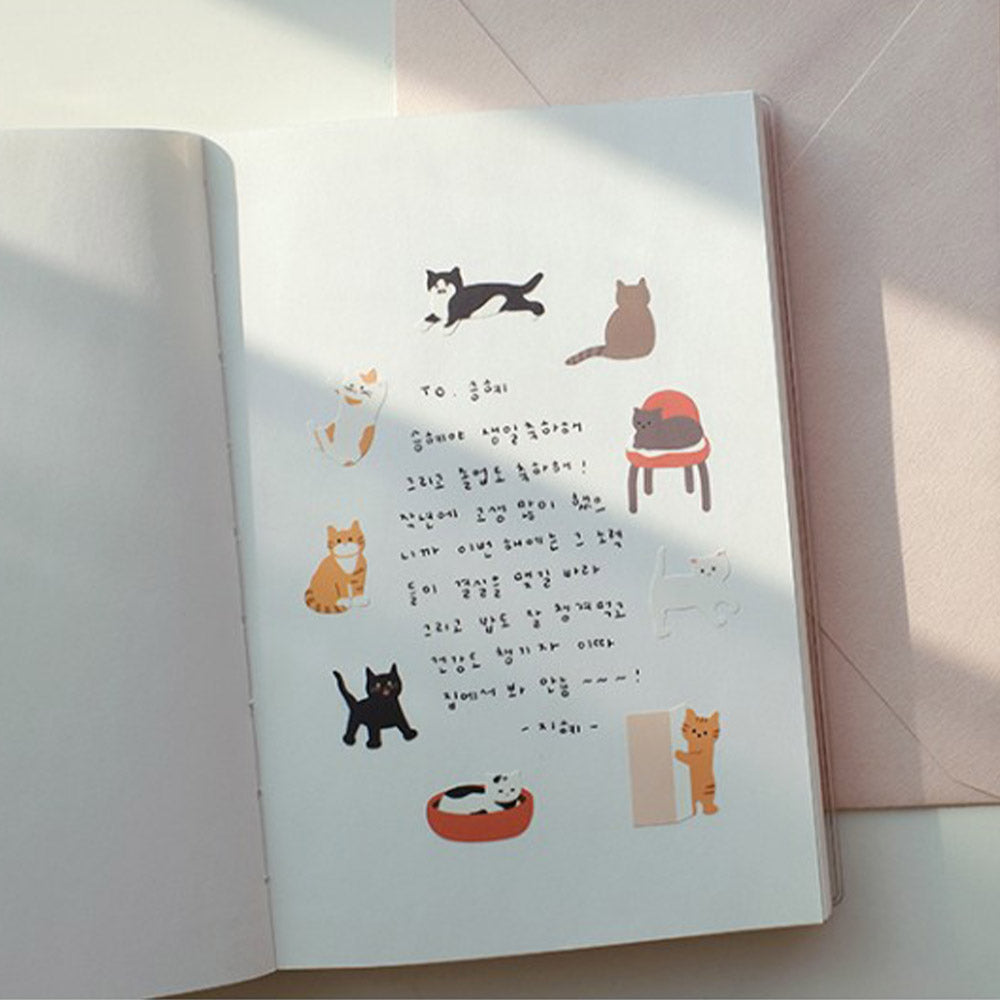 TO. 승혜
승혜야 생일축하해
그리고 졸업도 축하해!
작년에 고생 많이 했으
니까 이번 해에는 그 노력
들이 결실을 맺길 바라
그리고 밥도 잘 챙겨먹고
건강도 챙기자 이따
집에서 봐 안뇽 ~~~!
- 지혜 -